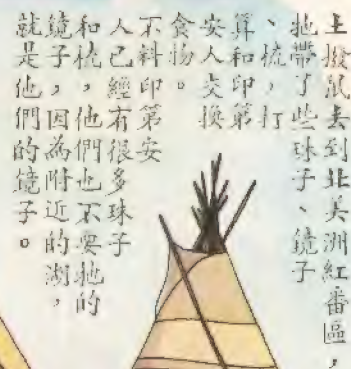 土撥鼠去到北美洲紅番區，
牠帶了些珠子、鏡子
、梳，打
算和印第
安人交換
食物。
不料印第安
人已經有很多珠子
和梳，他們也不要牠的
鏡子，因為附近的湖，
就是他們的鏡子。